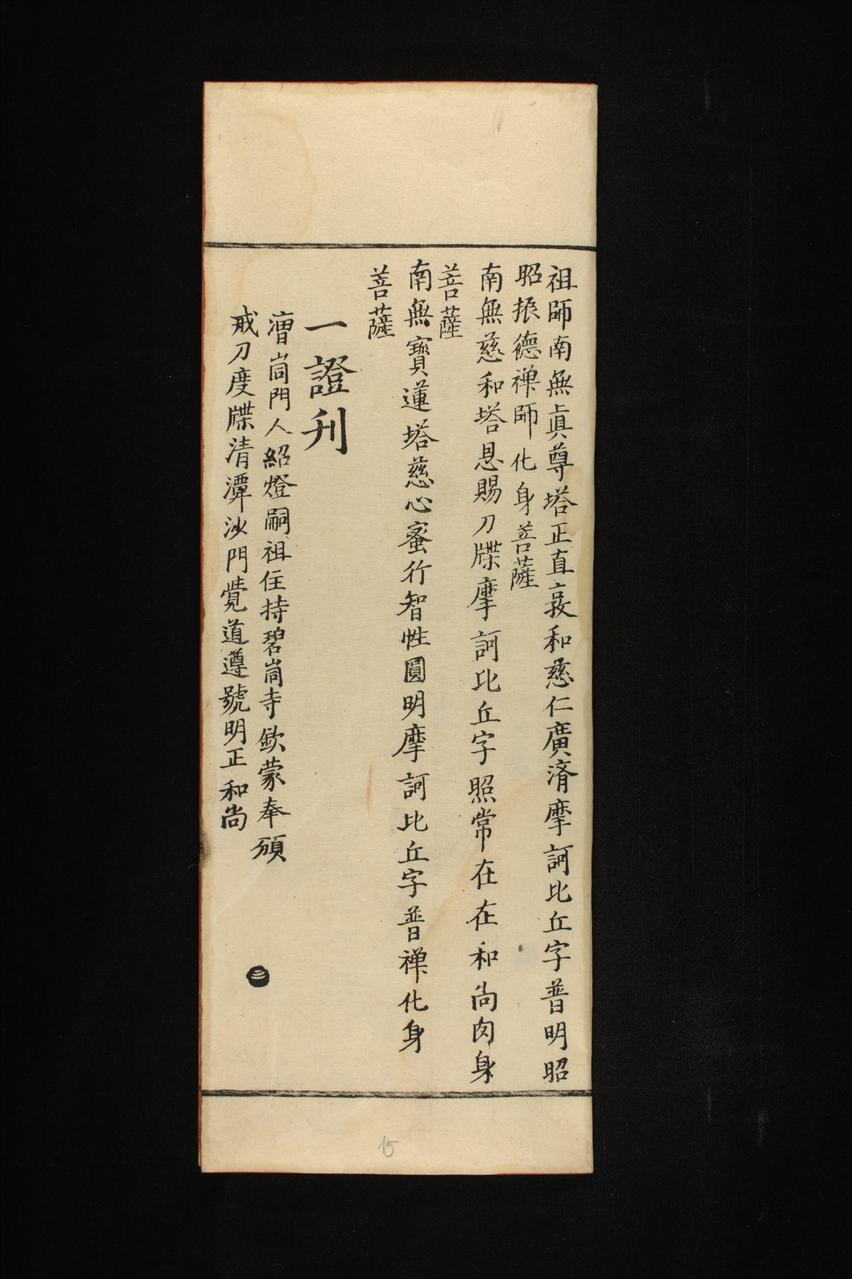 祖師南無眞尊塔正直哀和慈仁廣濟摩訶比丘字普明昭
昭振德禅師化身菩薩
南無慈和塔恩賜刀牒摩訶比丘字照常在在和尚肉身
菩薩
南無寶蓮塔慈心蜜行智性圓明摩訶比丘字普禅化身
菩薩
一證刋
漕峝門人紹燈嗣祖住持碧峝寺欽蒙奉頒
戒刀度牒清潭沙門覺道遵號明正和尚
三
15